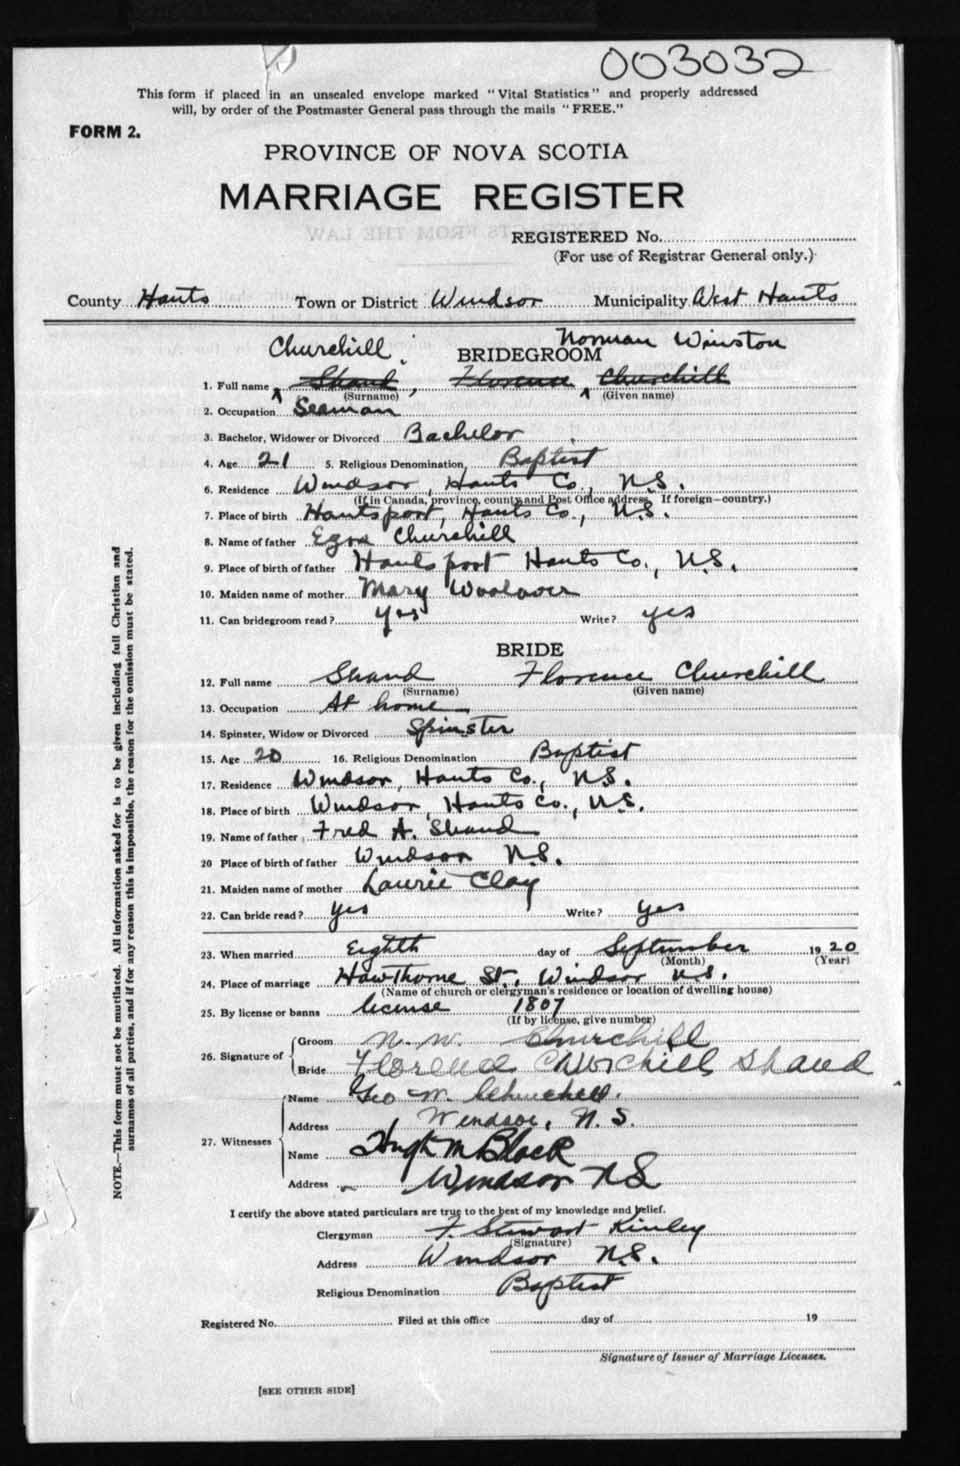 003032
This form if placed in an unsealed envelope marked "Vital Statistics" and properly addressed
will, by order of the Postmaster General pass through the mails "FREE."
FORM 2.
PROVINCE OF NOVA SCOTIA
MARRIAGE REGISTER
EXTRACTS FROM THE LAW
REGISTERED No.
(For use of Registrar General only.)
County Hants Town or District Windsor Municipality West Hants
Churchill, Norman Winston
BRIDEGROOM
1. Full name Shand, Florence Churchill
(Surname) (Given name)
2. Occupation Seaman
3. Bachelor, Widower or Divorced Bachelor
4. Age 21 5. Religious Denomination, Baptist
6. Residence Windsor, Hants Co., N.S.
(If in Canada, province, county and Post Office address. If foreign—country.)
7. Place of birth Hantsport, Hants Co., N.S.
8. Name of father Ezra Churchill
9. Place of birth of father Hantsport Hants Co., N.S.
10. Maiden name of mother Mary Woolaver
11. Can bridegroom read? yes Write? yes
BRIDE
12. Full name Shand Florence Churchill
(Surname) (Given name)
13. Occupation At home
14. Spinster, Widow or Divorced Spinster
15. Age 20 16. Religious Denomination Baptist
17. Residence Windsor, Hants Co., N.S.
18. Place of birth Windsor, Hants Co., N.S.
19. Name of father Fred A. Shand
20 Place of birth of father Windsor N.S.
21. Maiden name of mother Laurie Clay
22. Can bride read? yes Write? yes
23. When married Eighth day of September 1920
(Month) (Year)
24. Place of marriage Hawthorne St., Windsor N.S.
(Name of church or clergyman's residence or location of dwelling house)
25. By license or banns license 1807
(If by license, give number)
26. Signature of Groom N. W. Churchill
Bride Florence Churchill Shand
27. Witnesses Name Geo W. Churchill.
Address Windsor, N. S.
Name Hugh M Black
Address Windsor NS
I certify the above stated particulars are true to the best of my knowledge and belief.
Clergyman F. Stewart Kinley
(Signature)
Address Windsor N.S.
Religious Denomination Baptist
Registered No. Filed at this office day of 19
Signature of Issuer of Marriage Licenses.
[SEE OTHER SIDE]
NOTE.—This form must not be mutilated. All information asked for is to be given including full Christian and
surnames of all parties, and if for any reason this is impossible, the reason for the omission must be stated.